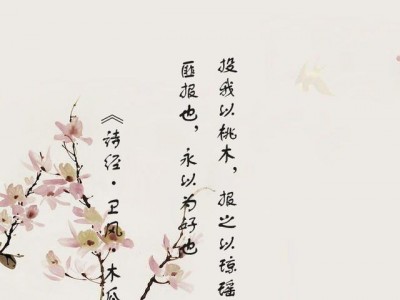 投我以桃木，报之以琼瑶
匪报也，永以为好也
《诗经·卫风·木瓜